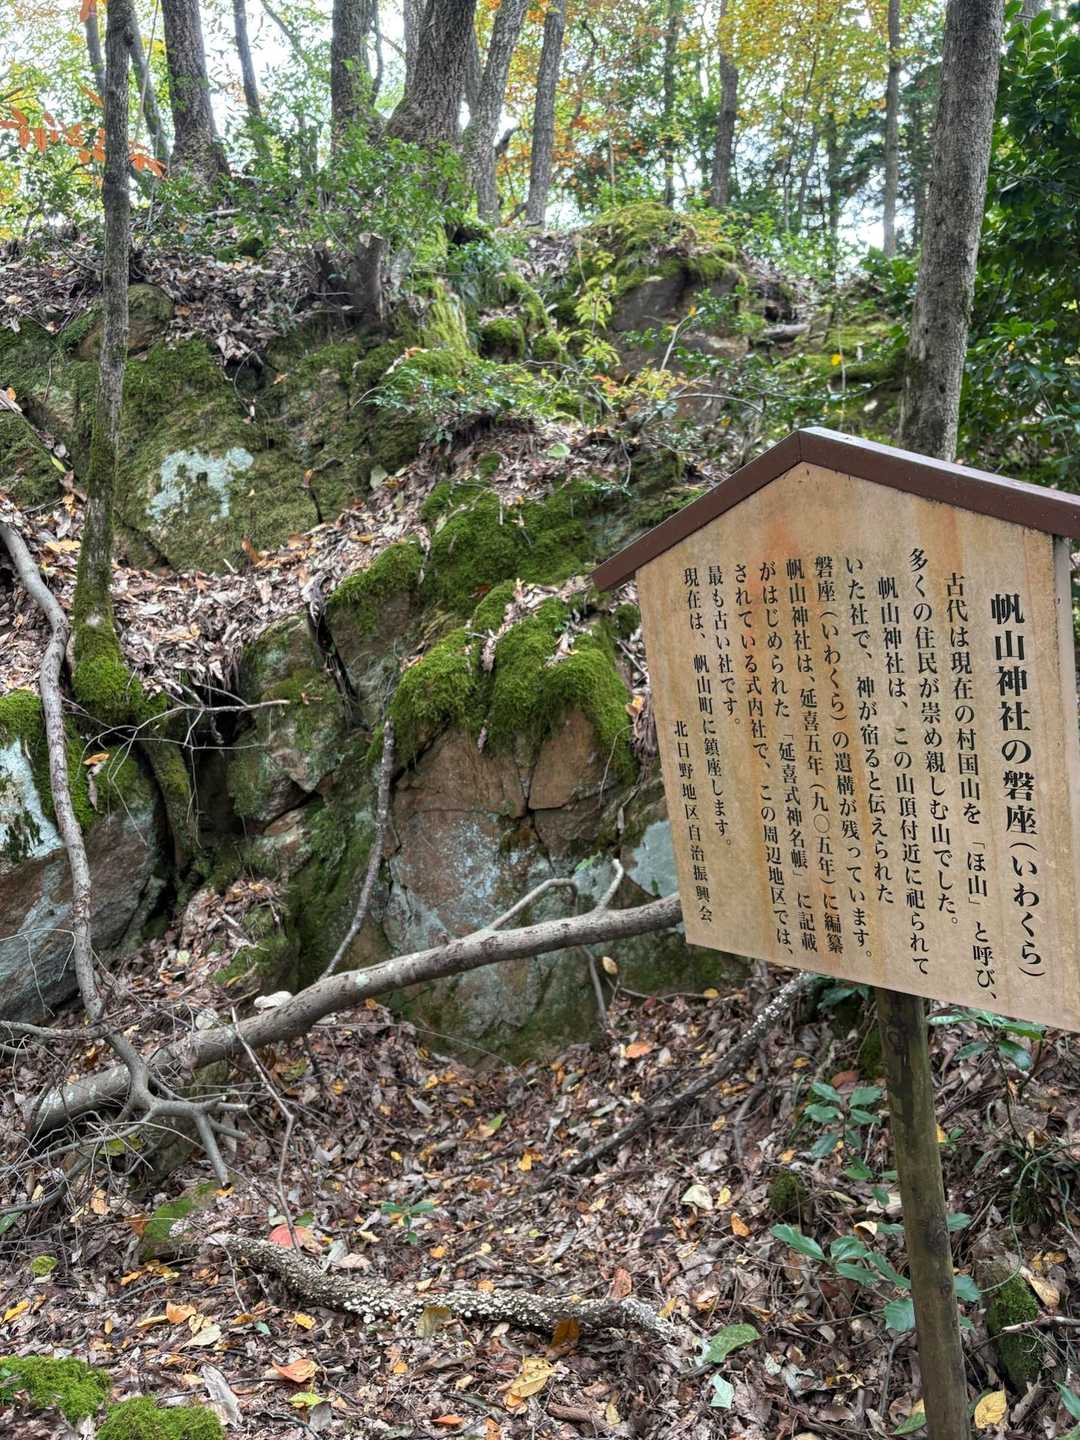 帆山神社の磐座(いわくら)
古代は現在の村国山を「ほ山」と呼び、
多くの住民が崇め親しむ山でした。
帆山神社は、この山頂付近に祀られて
いた社で、神が宿ると伝えられた
磐座(いわくら)の遺構が残っています。
帆山神社は、延喜五年(九〇五年)に編纂
がはじめられた「延喜式神名帳」に記載
されている式内社で、この周辺地区では、
最も古い社です。
現在は、帆山町に鎮座します。
北日野地区自治振興会